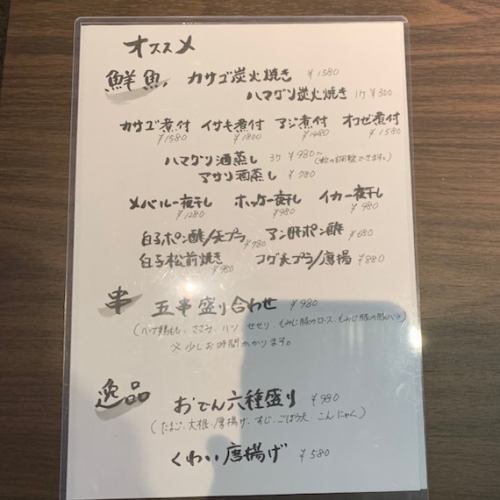 オススメ
鮮魚 カサゴ炭火焼き ¥1580
ハマグリ炭火焼き 1ケ ¥300
カサゴ煮付 イサキ煮付 アジ煮付 オコゼ煮付
¥1580 ¥1800 ¥1480 ¥1580
ハマグリ酒蒸し 3ケ ¥980〜
アサリ酒蒸し ¥780
メバル一夜干し ホッケ一夜干し イカ一夜干し
¥1280 ¥980 ¥980
白子ポン酢/天プラ ¥780 アン肝ポン酢 ¥680
白子松前焼き ¥980 フグ天プラ/唐揚 ¥880
串 五串盛り合わせ ¥980
ささみ、ハツ、せせり、
※少しお時間かかります。
逸品 おでん六種盛り ¥980
(たまご、大根、厚揚げ、すじ、ごぼう天、こんにゃく)
くわい唐揚げ ¥580